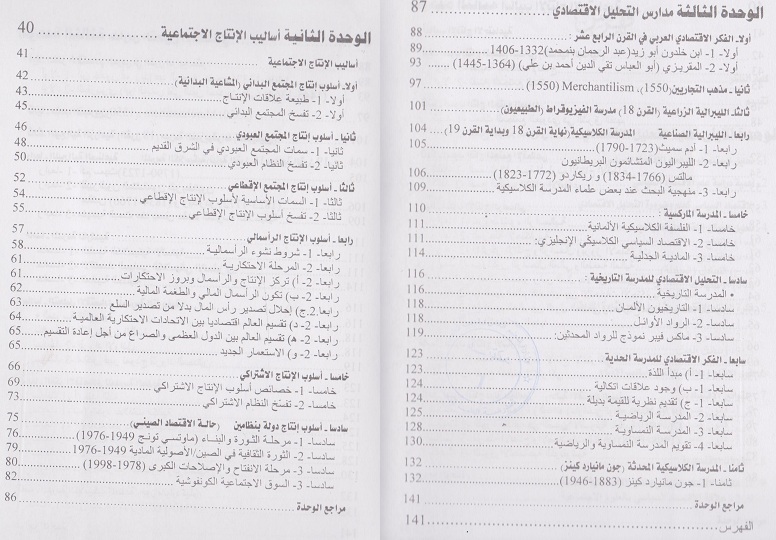 الوحدة الثالثة مدارس التحليل الاقتصادي ........ 87
أولا- الفكر الاقتصادي العربي في القرن الرابع عشر :
أولا- 1- ابن خلدون أبو زيد(عبد الرحمان بنمحمد)1332-1406 ........ 88
أولا- 2- المقريزي (أبو العباس تقي الدين أحمد بن علي) (1364-1445) ........ 93
ثانيا - مذهب التجاريين(1550)، Merchantilism (1550) ........ 97
ثالثا- الليبرالية الزراعية (القرن 18) مدرسة الفيزيوقراط (الطبيعيون) ........ 101
رابعا - الليبرالية الصناعية المدرسة الكلاسيكية(نهاية القرن 18 وبداية القرن 19) ........ 104
رابعا- 1- آدم سميث(1723-1790) ........ 105
رابعا- 2- الليبراليون المتشائمون البريطانيون
مالتس (1766-1834) و ريكاردو (1772-1823) ........ 106
رابعا- 3- منهجية البحث عند بعض علماء المدرسة الكلاسيكية ........ 109
خامسا - المدرسة الماركسية : ........ 110
خامسا- 1- الفلسفة الكلاسيكية الألمانية ........ 111
خامسا- 2- الاقتصاد السياسي الكلاسيكي الإنجليزي: ........ 111
خامسا- 3- المادية الجدلية ........ 114
سادسا - التحليل الاقتصادي للمدرسة التاريخية : ........ 116
• المدرسة التاريخية ........ 116
سادسا- 1- التاريخيون الألمان ........ 118
سادسا- 2- الرواد الأوائل ........ 118
سادسا- 3- ماكس فيبر نموذج للرواد المحدثين: ........ 119
سابعا - الفكر الاقتصادي للمدرسة الحدية : ........ 123
سابعا- 1- أ) مبدأ اللذة ........ 123
سابعا- 1- ب) وجود علاقات اتكالية ........ 124
سابعا- 1- ج) تقديم نظرية للقيمة بديلة ........ 124
سابعا- 2- المدرسة الرياضية ........ 125
سابعا- 3- المدرسة النمساوية ........ 128
سابعا- 4- تقويم المدرسة النمساوية والرياضية ........ 130
ثامنا - المدرسة الكلاسيكية المحدثة (جون مانيارد كينز) ........ 132
ثامنا- 1- جون مانيارد كينز (1883-1946) ........ 132
مراجع الوحدة ........ 141
الفهرس ........ 141
الوحدة الثانية أساليب الإنتاج الاجتماعية ........ 40
أساليب الإنتاج الاجتماعية ........ 41
أولا- أسلوب إنتاج المجتمع البدائي (المشاعية البدائية) ........ 42
أولا- 1- طبيعة علاقات الإنتاج ........ 43
أولا- 2- تفسخ المجتمع البدائي ........ 45
ثانيا - أسلوب إنتاج المجتمع العبودي ........ 46
ثانيا- 1- سمات المجتمع العبودي في الشرق القديم ........ 48
ثانيا- 2- تفسخ النظام العبودي ........ 50
ثالثا - أسلوب إنتاج المجتمع الإقطاعي ........ 52
ثالثا- 1- السمات الأساسية لأسلوب الإنتاج الإقطاعي ........ 54
ثالثا- 2- تفسخ أسلوب الإنتاج الإقطاعي ........ 55
رابعا - أسلوب الإنتاج الرأسمالي ........ 57
رابعا- 1- شروط نشوء الرأسمالية ........ 58
رابعا- 2- المرحلة الاحتكارية ........ 61
رابعا- 2- أ) تركز الإنتاج والرأسمال وبروز الاحتكارات ........ 61
رابعا- 2- ب) تكون الرأسمال المالي والطغمة المالية ........ 62
رابعا.2.ج) إحلال تصدير رأس المال بدلا من تصدير السلع ........ 63
رابعا- 2- د) تقسيم العالم اقتصاديا بين الاتحادات الاحتكارية العالمية ........ 64
رابعا- 2- ه) تقسيم العالم بين الدول العظمى والصراع من أجل إعادة التقسيم ........ 65
رابعا- 2- و) الاستعمار الجديد ........ 65
خامسا - أسلوب الإنتاج الاشتراكي ........ 66
خامسا- 1- خصائص أسلوب الإنتاج الاشتراكي ........ 69
خامسا- 2- تفسخ النظام الاشتراكي ........ 73
سادسا - أسلوب إنتاج دولة بنظامين (حالة الاقتصاد الصيني) ........ 75
سادسا- 1- مرحلة الثورة والبناء (ماوتسي تونج 1949-1976) ........ 76
سادسا- 2- الثورة الثقافية في الصين/الأصولية المادية 1949-1976 ........ 79
سادسا- 3- مرحلة الانفتاح والإصلاحات الكبرى (1978-1998) ........ 80
سادسا- 3- السوق الاجتماعية الكونفوشية ........ 82
مراجع الوحدة ........ 86